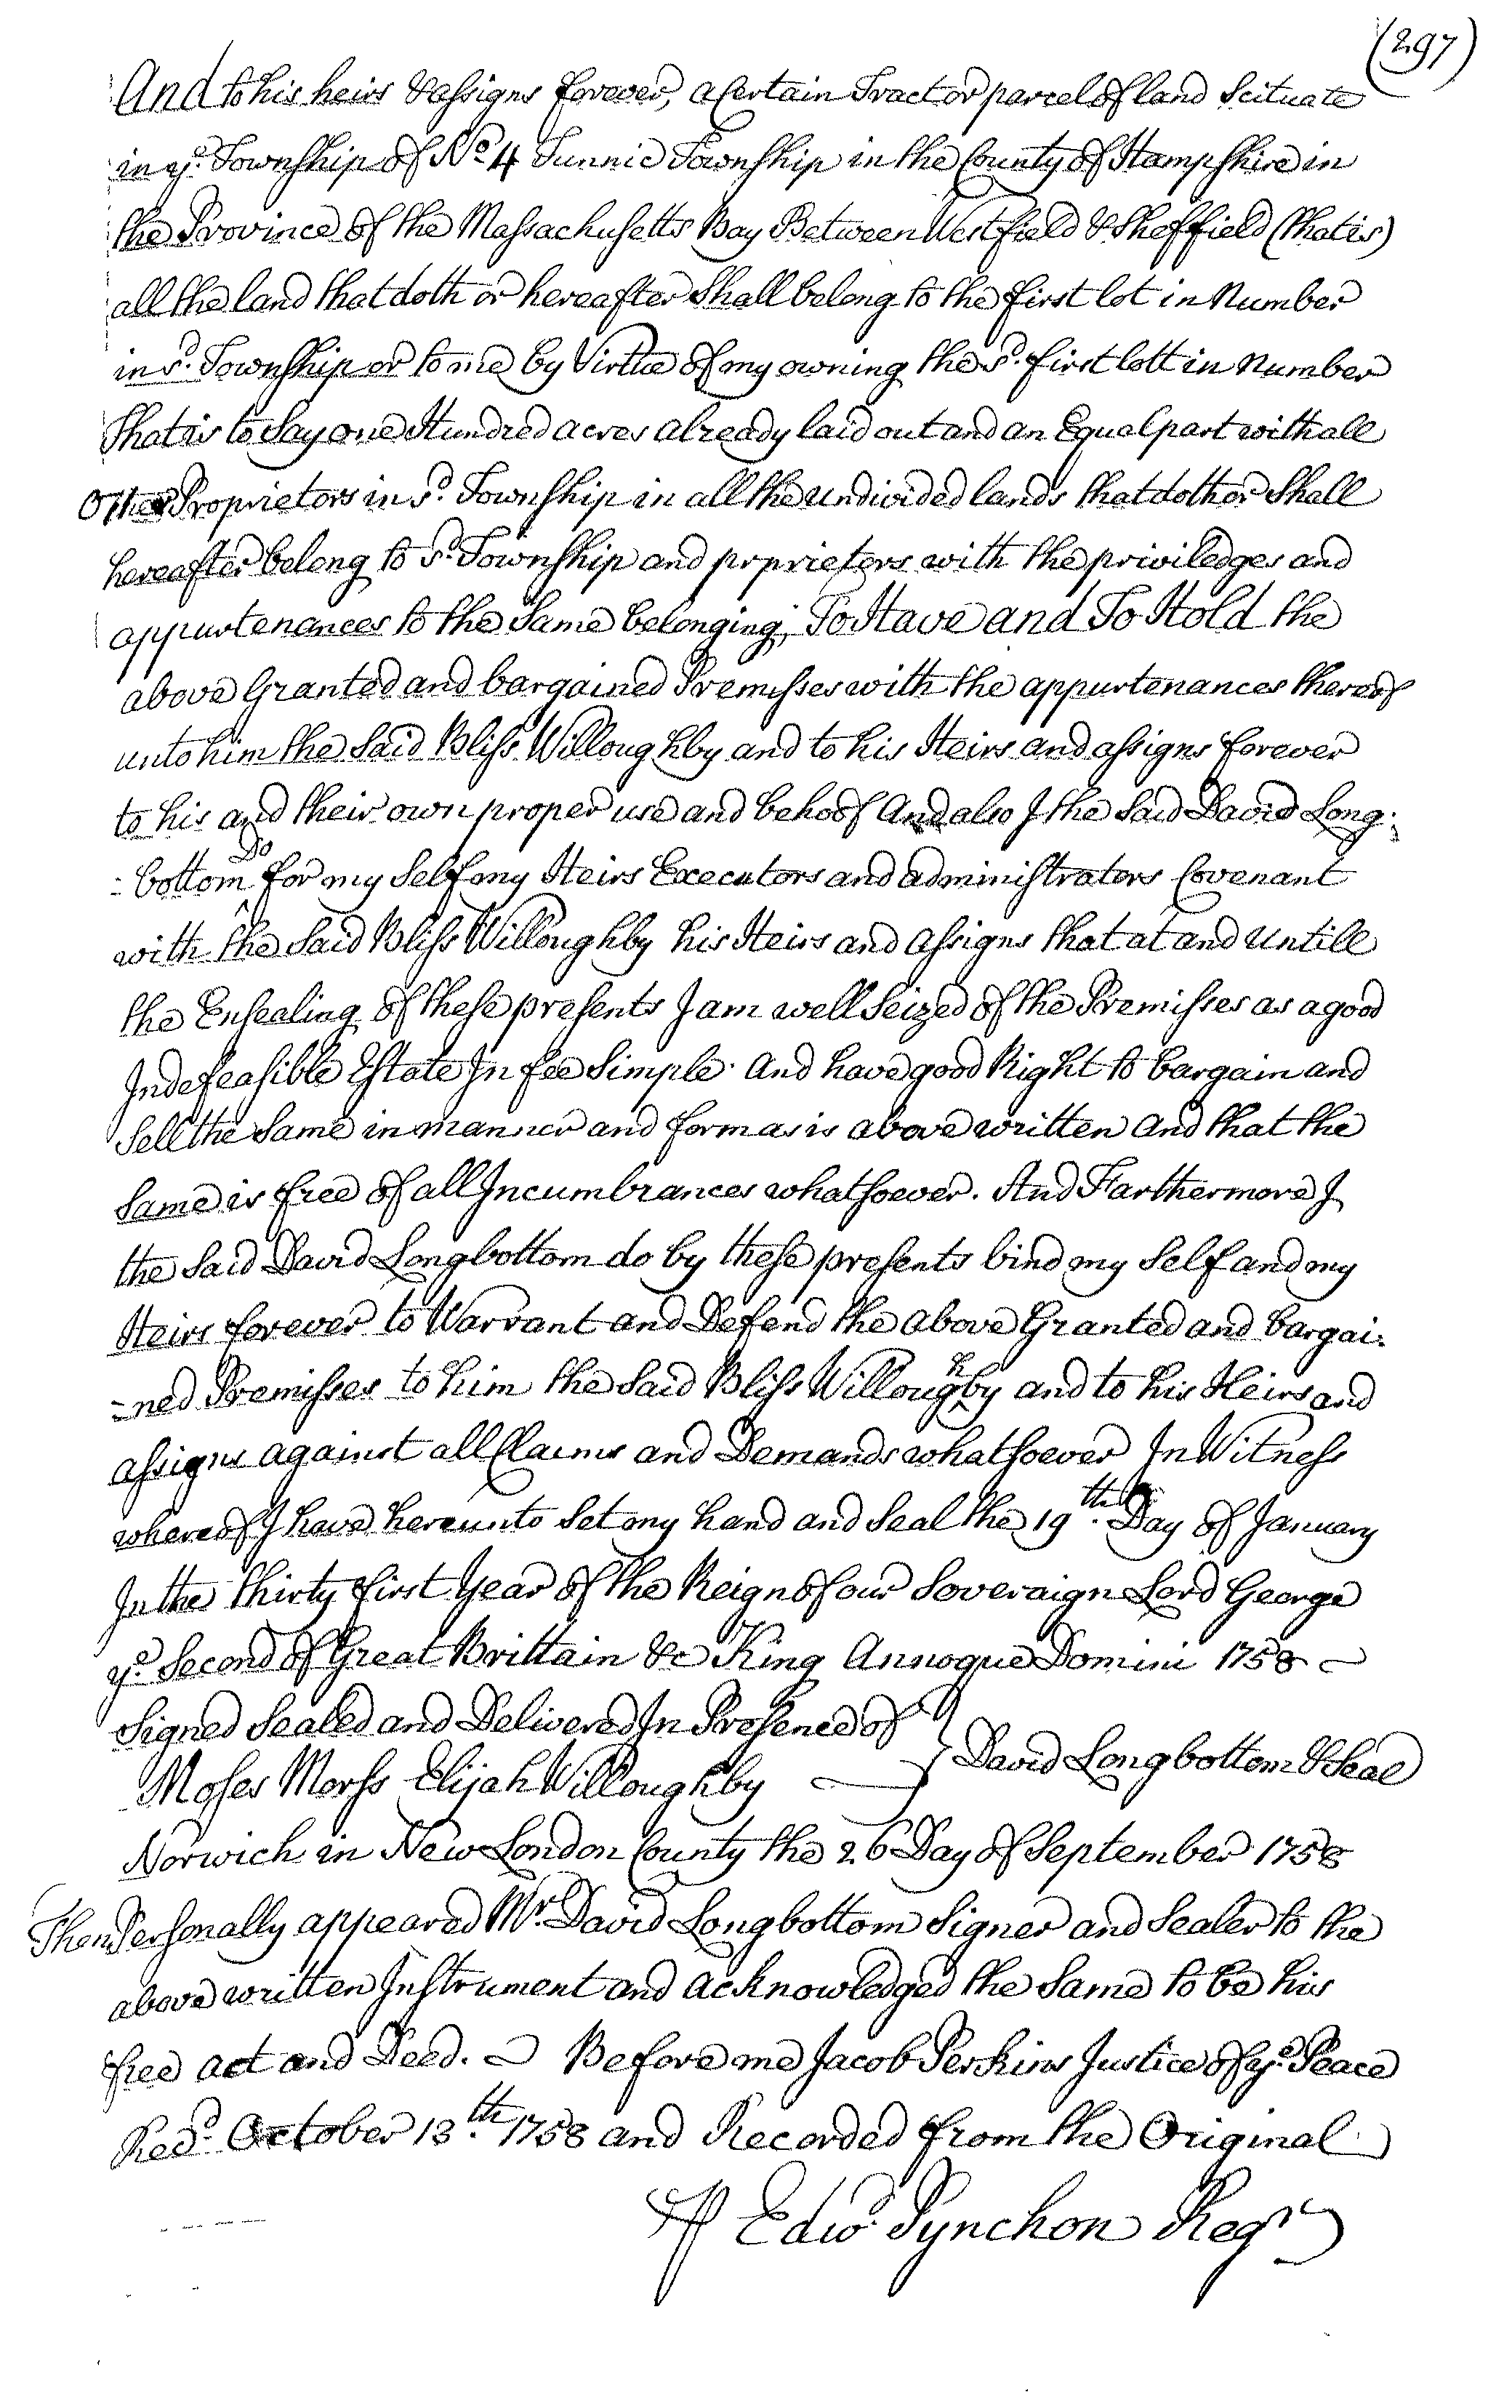 (297)
And to his heirs & assigns forever, a Certain Tract or parcel of land Scituate
in ye. Township of No. 4 Tunnic Township in the County of Hampshire in
the Province of the Massachusetts Bay Between Westfield & Sheffield (that is)
all the land that doth or hereafter Shall belong to the first lot in Number
in sd. Township or to me by Virtue of my owning the sd. first lott in Number
that is to Say one Hundred acres already laid out and an Equal part with all
Other Proprietors in sd. Township in all the undivided lands that doth or Shall
hereafter belong to sd. Township and proprieters with the priviledges and
appurtenances to the Same belonging; To Have and To Hold the
above Granted and bargained Premisses with the appurtenances thereof
unto him the Said Bliss Willoughby and to his Heirs and assigns forever
to his and their own proper use and behoof And also I the Said David Long-
-bottom Do for my Self my Heirs Executors and administrators Covenant
with the Said Bliss Willoughby his Heirs and assigns that at and Untill
the Ensealing of these presents I am well Seized of the Premisses as a good
Indefeasible Estate In fee Simple. And have good Right to bargain and
Sell the Same in manner and form as is above written And that the
Same is free of all Incumbrances whatsoever. And Farthermore I
the Said David Longbottom do by these presents bind my Self and my
Heirs forever to Warrant and Defend the above Granted and bargai-
-ned Premisses to him the Said Bliss Willoughby and to his Heirs and
assigns against all Claims and Demands whatsoever In Witness
whereof I have hereunto Set my hand and Seal the 19th. Day of January
In the thirty first year of the Reign of our Soveraign Lord George
ye. Second of Great Brittain &c King Annoque Domini 1758
Signed Sealed and Delivered In Presence of
Moses Morss Elijah Willoughby } David Longbottom & Seal
Norwich in New London County the 26 Day of September 1758
Then Personally appeared Mr. David Longbottom Signer and Sealer to the
above written Instrument and acknowledged the Same to be his
free act and Deed. Before me Jacob Perkins Justice of ye. Peace
Recd. October 13th. 1758 and Recorded from the Original
℔ Edwd. Pynchon Regr